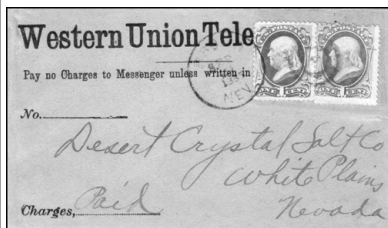 Western Union Tele
Pay no Charges to Messenger unless written in
NEV
No.
Desert Crystal Salt Co
White Plains
Charges, Paid
Nevada